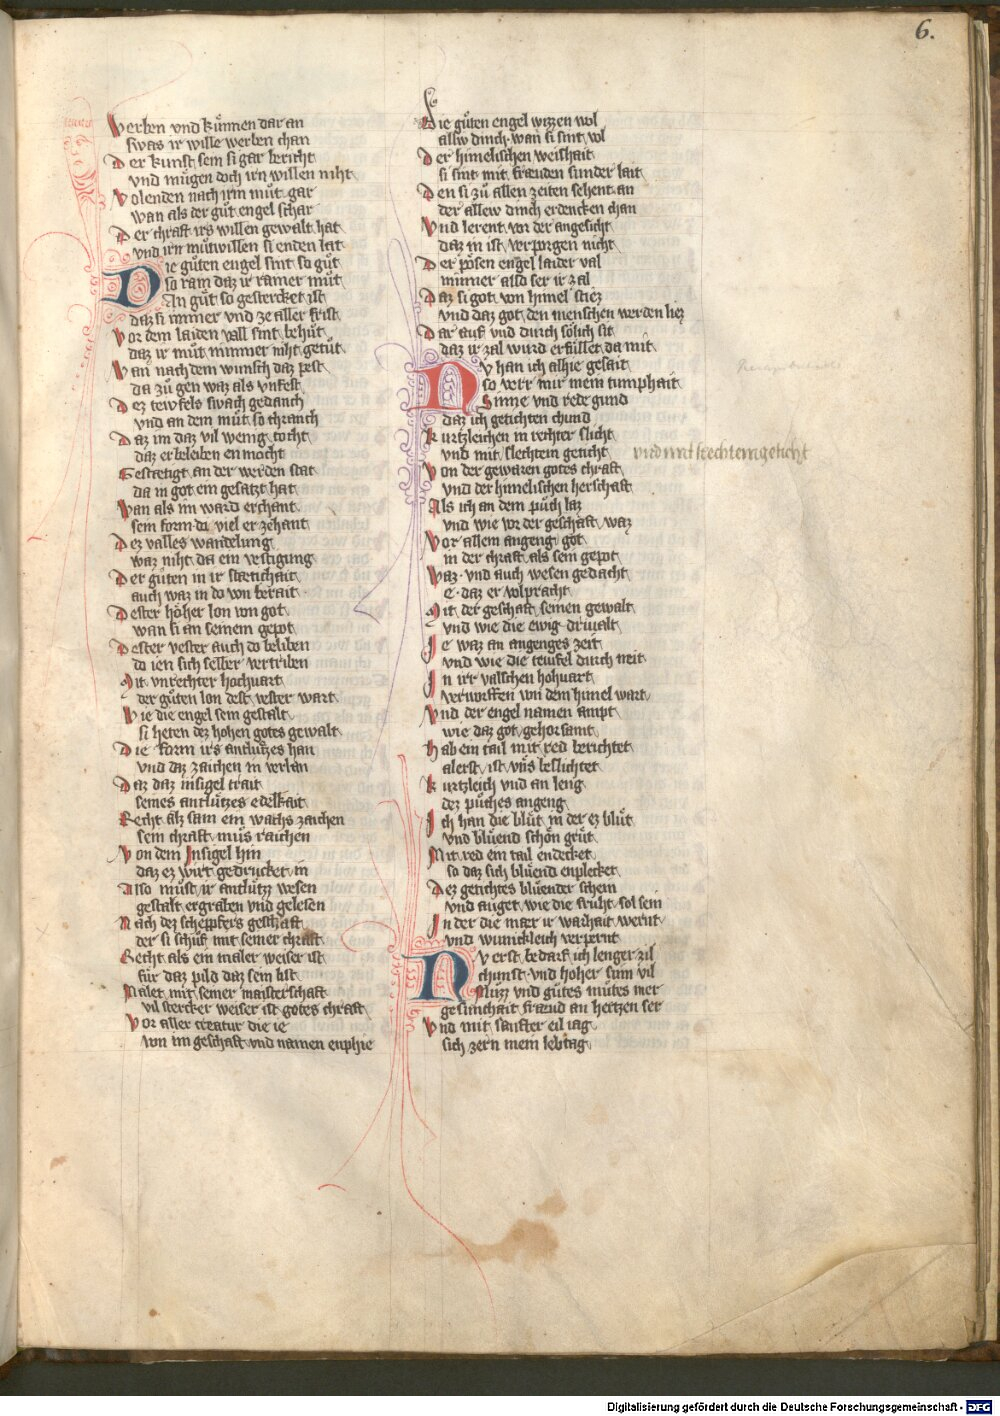 6.
Werben vnd kuͦnnen dar an
swas ir wille werben chan
Der kunst sein si gar bericht
vnd muͤgen doch irn willen niht
Volenden nach irm muͤt gar
wan als der guͤt engel schar
Der chraft irs willen gewalt hat
vnd irn muͤtwillen si enden lat
Die guͤten engel sint so guͤt
so rain daz ir rainer muͤt
An guͤt so gestercket ist
daz si immer vnd ze aller frist
Vor dem laiden vall sint behuͤt
daz ir muͤt nimmer niht getuͤt
Wan nach dem wunsch daz pest
da zuͤ gen waz als vnfest
Dez tewfels swach gedanch
vnd an dem muͤt so chranch
Daz im daz vil wenig tocht
daz er beleiben en mocht
Gestaetigt an der werden stat
da in got ein gesatzt hat
Wan als im ward erchant
sein form do viel er zehant
Dez valles wandelung
waz niht da ein vestigung
Der guͤten in ir staetichait
auch waz in do von berait
Dester hoͤher lon von got
wan si an seinem gepot
Dester vester auch do beliben
do ien sich selber vertriben
Mit vnrechter hochuart
der guͤten lon dest vester wart
Wie die engel sein gestalt
si heten dez hohen gotes gewalt
Die form irs antlutzes han
vnd daz zaichen in verlan
Daz daz insigel trait
seines antlutzes edelkait
Recht als sam ein wachs zaichen
sein chraft muͤs raichen
Von dem Insigel hin
daz ez wirt gedrucket in
Also muͤst ir antlutz wesen
gestalt ergraben vnd gelesen
Nach dez scheppfers geschaft
der si schuͤf mit seiner chraft
Recht als ein maler weiser ist
fuͤr daz pild daz sein list
Malet mit seiner maisterschaft
vil stercker weiser ist gotes chraft
Vor aller creatur die ie
von im geschaft vnd namen enphie
Die guͤten engel wizzen wol
allew dinch wan si sint vol
Der himelischen weishait
si sint mit frauden sunder lait
Den si zuͤ allen zeiten sehent an
der allew dinch erdencken chan
Vnd lerent vor der angesicht
daz in ist verporgen nicht
Der poͤsen engel laider val
nimmer also ser ir zal
Daz si got von himel stiez
vnd daz got den menschen werden liez
Dar auf vnd durch soͤlich sit
daz ir zal wurd erfullet da mit
Nv han ich alhie gesait
so verr mir mein tumphait
Sinne vnd rede gund
daz ich getichten chund
Kurtzleichen in rechter slicht
vnd mit slechtem geticht
vnd mit slechtem geticht
Von der gewaren gotes chraft
vnd der himelischen herschaft
Als ich an dem puͤch laz
vnd wie vor der geschaft waz
Vor allem angeng got
in der chraft als sein gepot
Waz vnd auch wesen gedacht
e daz er volpracht
Mit der geschaft seinen gewalt
vnd wie die ewig driualt
Ie waz an angenges zeit
vnd wie die teufel durch neit
In irr valschen hohuart
verworffen von dem himel wart
Vnd der engel namen ampt
wie daz got gehorsamt
Hab ein tail mit red berichtet
alerst ist vns beslichtet
Kurtzleich vnd an leng
dez puͤches angeng
Ich han die bluͤt in der ez bluͤt
vnd bluͤend schoͤn gruͤt
Mit red ein tail endecket
so daz sich bluͤend enplecket
Dez getichtes bluͤender schein
vnd auget wie die fruht sol sein
In der die maer ir warhait wernt
vnd wunickleich verpernt
Nv erst bedarf ich lenger zil
chunst vnd hoher sinn vil
Nutz vnd guͤtes muͤtes mer
gesunthait fraud an hertzen ser
Vnd mit sanfter eil iag
sich zern mein lebtag
Digitalisierung gefördert durch die Deutsche Forschungsgemeinschaft - DFG